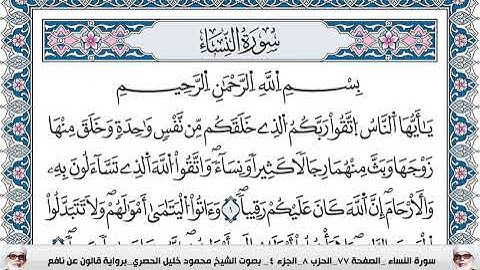 سُورَةُ النِّسَاءِ
بِسْمِ اِللَّهِ اِلرَّحْمَٰنِ اِلرَّحِيمِ
يَٰأَيُّهَا اَلنَّاسُ اُتَّقُوا رَبَّكُمُ اُلَّذِے خَلَقَكُم مِّن نَّفْسٖ وَٰحِدَةٖ وَخَلَقَ مِنْهَا
زَوْجَهَا وَبَثَّ مِنْهُمَا رِجَالٗا كَثِيرٗا وَنِسَآءٗۖ وَاتَّقُوا اُللَّهَ اَلَّذِے تَسَّآءَلُونَ بِهِۦ
وَالَارْحَامَۖ إِنَّ اَللَّهَ كَانَ عَلَيْكُمْ رَقِيباٗۖ ١ وَءَاتُوا اُلْيَتَٰمَىٰٓ أَمْوَٰلَهُمْۖ وَلَا تَتَبَدَّلُوا
سورة النساء _الصفحة ٧٧_الحزب ٨_الجزء ٤ _ بصوت الشيخ محمود خليل الحصري_برواية قالون عن نافع